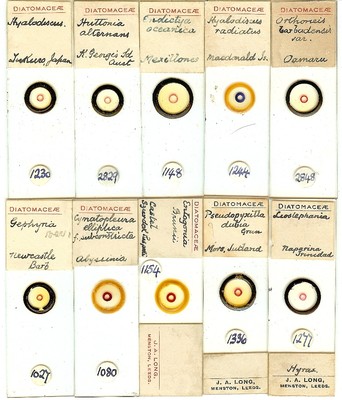 DIATOMACEÆ
Hyalodiscus.
Japan
1230
DIATOMACEÆ
Huttonia
alternans
K. Georges Sd
Aust
2829
DIATOMACEÆ
Endictya
oceanica
Mexillones
1148
DIATOMACEÆ
Hyalodiscus
radiatus
Macdonald Is.
1244
DIATOMACEÆ
Orthoneis
var.
Oamaru
2848
DIATOMACEÆ
Gephyria
Newcastle
Barb
1027
DIATOMACEÆ
Cymatopleura
elliptica
f. subconstricta
Abyssinia
1080
DIATOMACEÆ
Entogonia
Brunii
Castel
1154
J. A. LONG,
MENSTON, LEEDS.
DIATOMACEÆ
Pseudopyxilla
dubia
Grun
Mors, Jutland
1336
J. A. LONG,
MENSTON, LEEDS.
DIATOMACEÆ
Liostephania
Naparima
Trinidad
1277
Hyrax
J. A. LONG,
MENSTON, LEEDS.